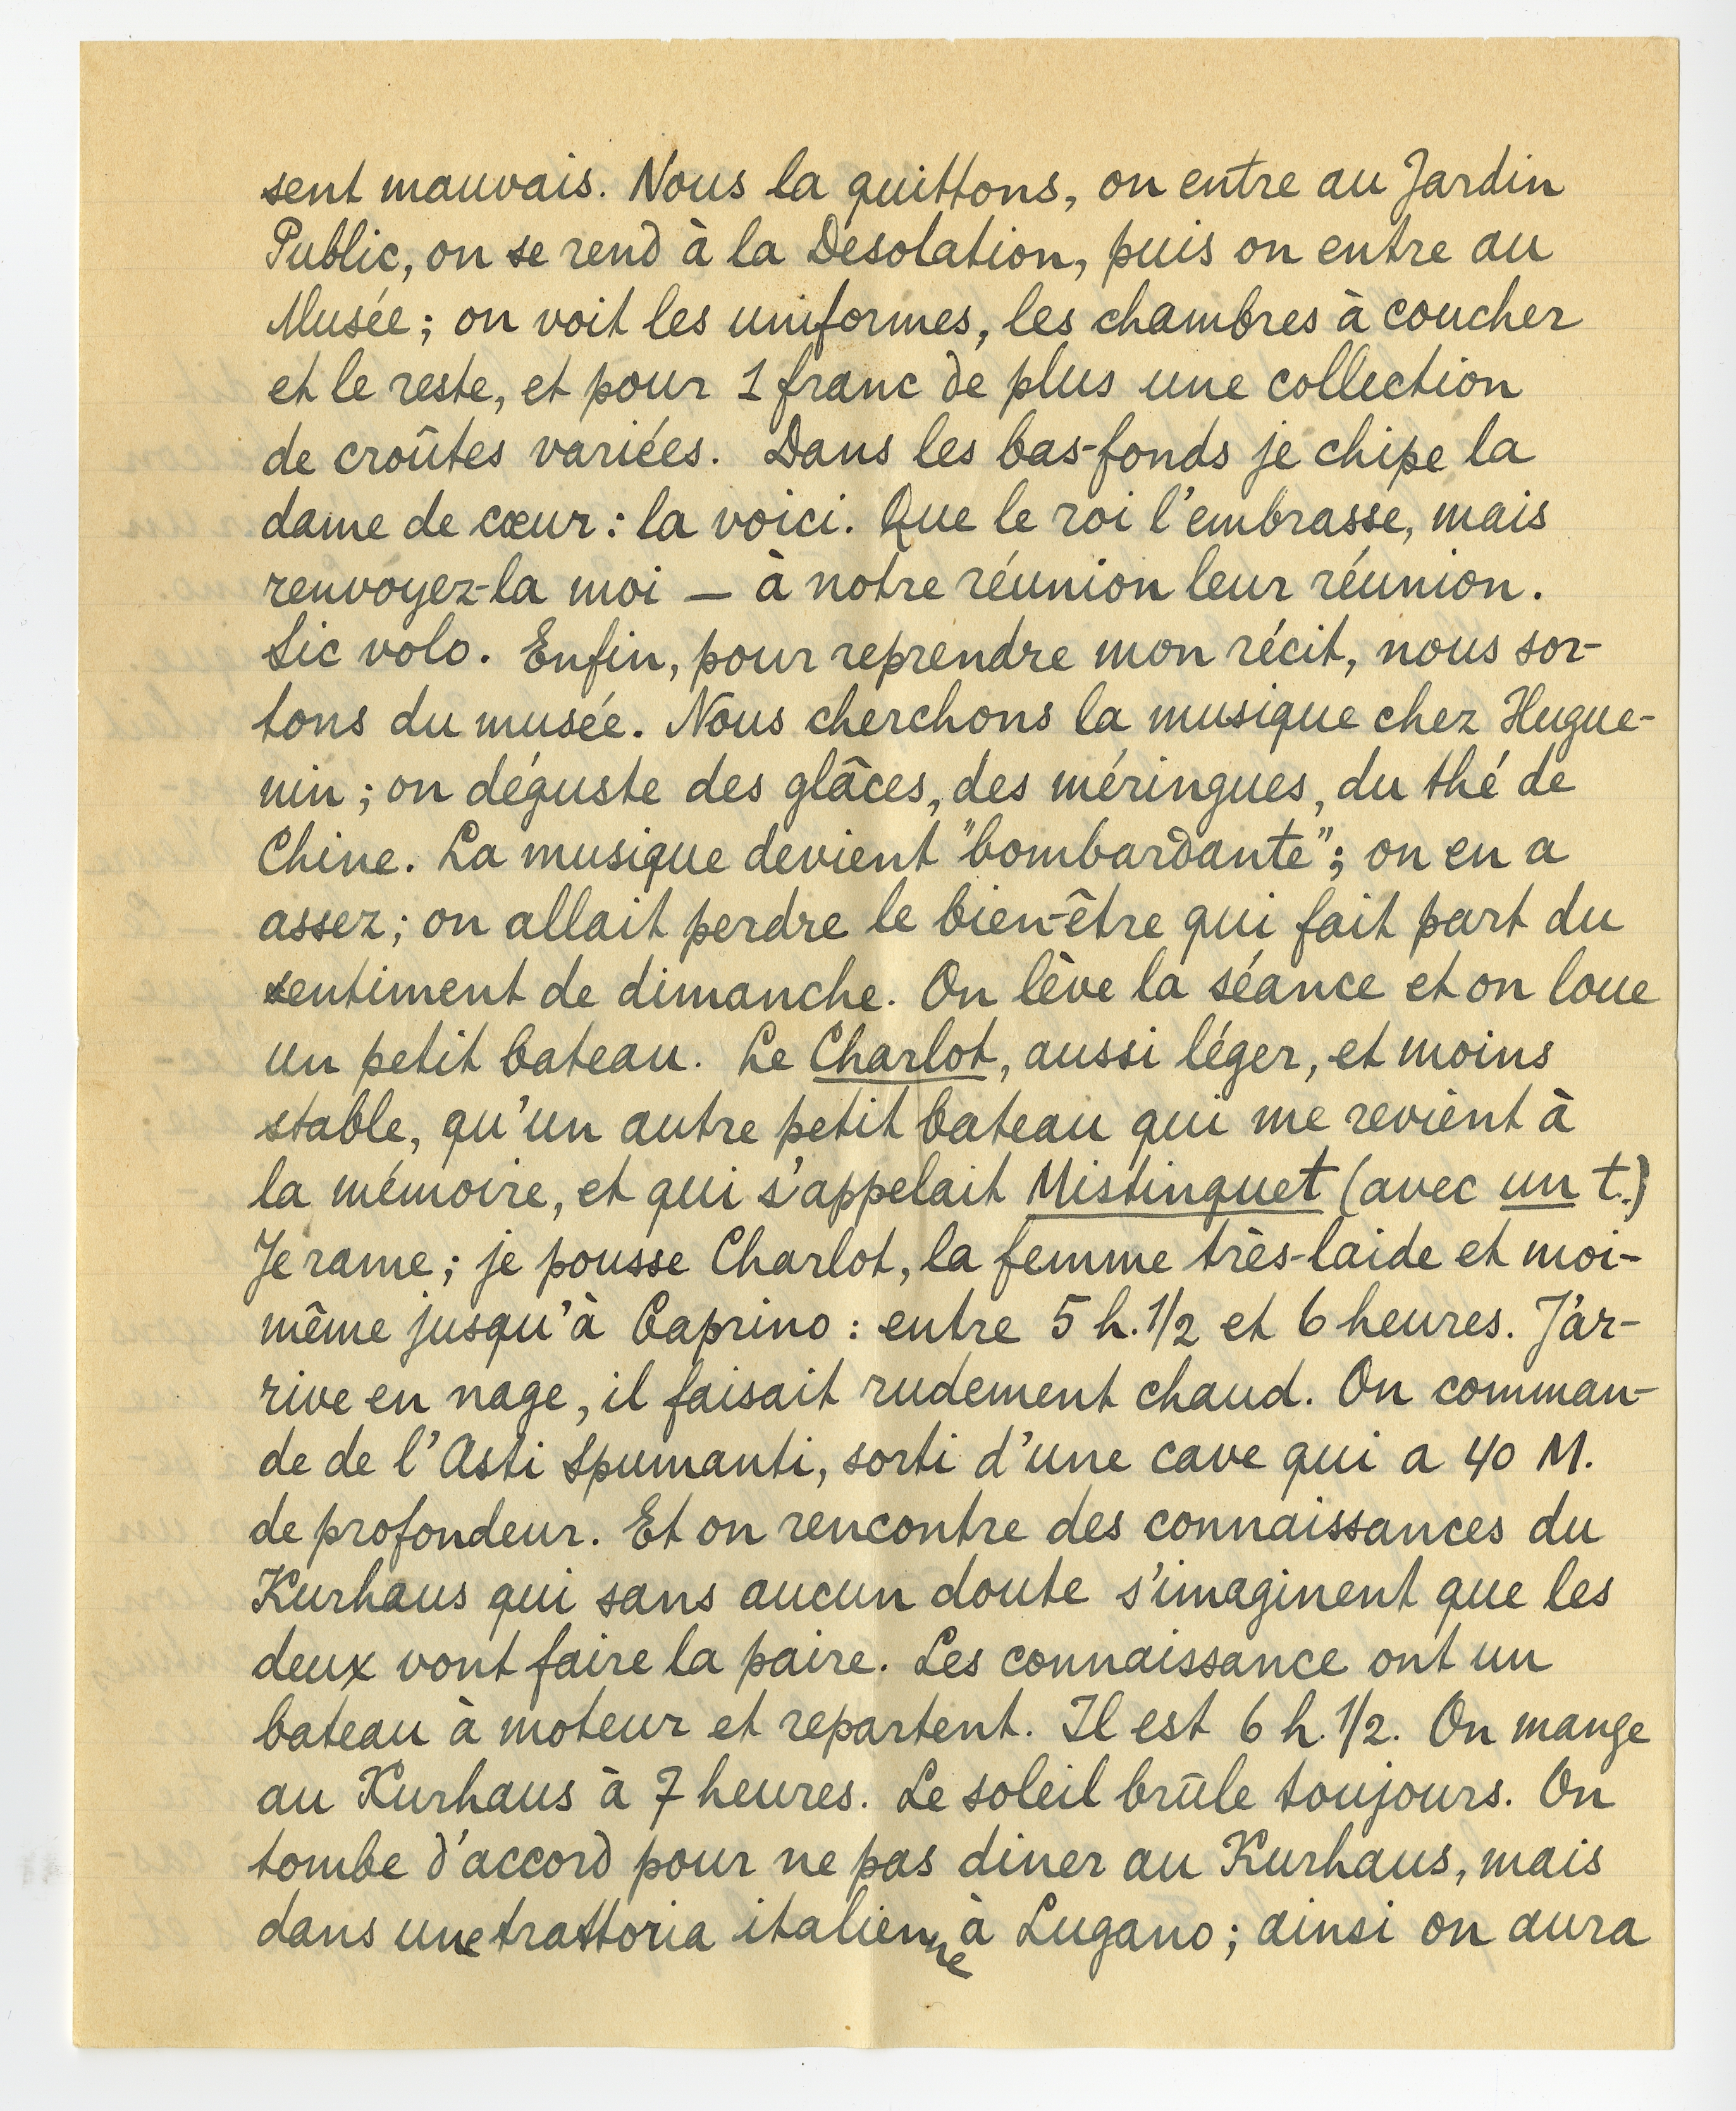 sent mauvais. Nous la quittons, on entre au Jardin
Public, on se rend à la Desolation, puis on entre au
Musée; on voit les uniformes, les chambres à coucher
et le reste, et pour 1 franc de plus une collection
de croûtes variées. Dans les bas-fonds je chipe la
dame de cœur: la voici. Que le roi l'embrasse, mais
renvoyez-la moi — à notre réunion leur réunion.
Sic volo. Enfin, pour reprendre mon récit, nous sor-
tons du musée. Nous cherchons la musique chez Hugue-
nin; on déguste des glâces, des méringues, du thé de
Chine. La musique devient "bombardante"; on en a
assez; on allait perdre le bien-être qui fait part du
sentiment de dimanche. On lève la séance et on loue
un petit bateau. Le Charlot, aussi léger, et moins
stable, qu'un autre petit bateau qui me revient à
la mémoire, et qui s'appelait Mistinguet (avec un t.)
Je rame; je pousse Charlot, la femme très-laide et moi-
même jusqu'à Caprino: entre 5 h. 1/2 et 6 heures. J'ar-
rive en nage, il faisait rudement chaud. On comman-
de de l'Asti Spumanti, sorti d'une cave qui a 40 M.
de profondeur. Et on rencontre des connaissances du
Kurhaus qui sans aucun doute s'imaginent que les
deux vont faire la paire. Les connaissance ont un
bateau à moteur et repartent. Il est 6 h. 1/2. On mange
au Kurhaus à 7 heures. Le soleil brûle toujours. On
tombe d'accord pour ne pas diner au Kurhaus, mais
dans une trattoria italienne à Lugano; ainsi on aura